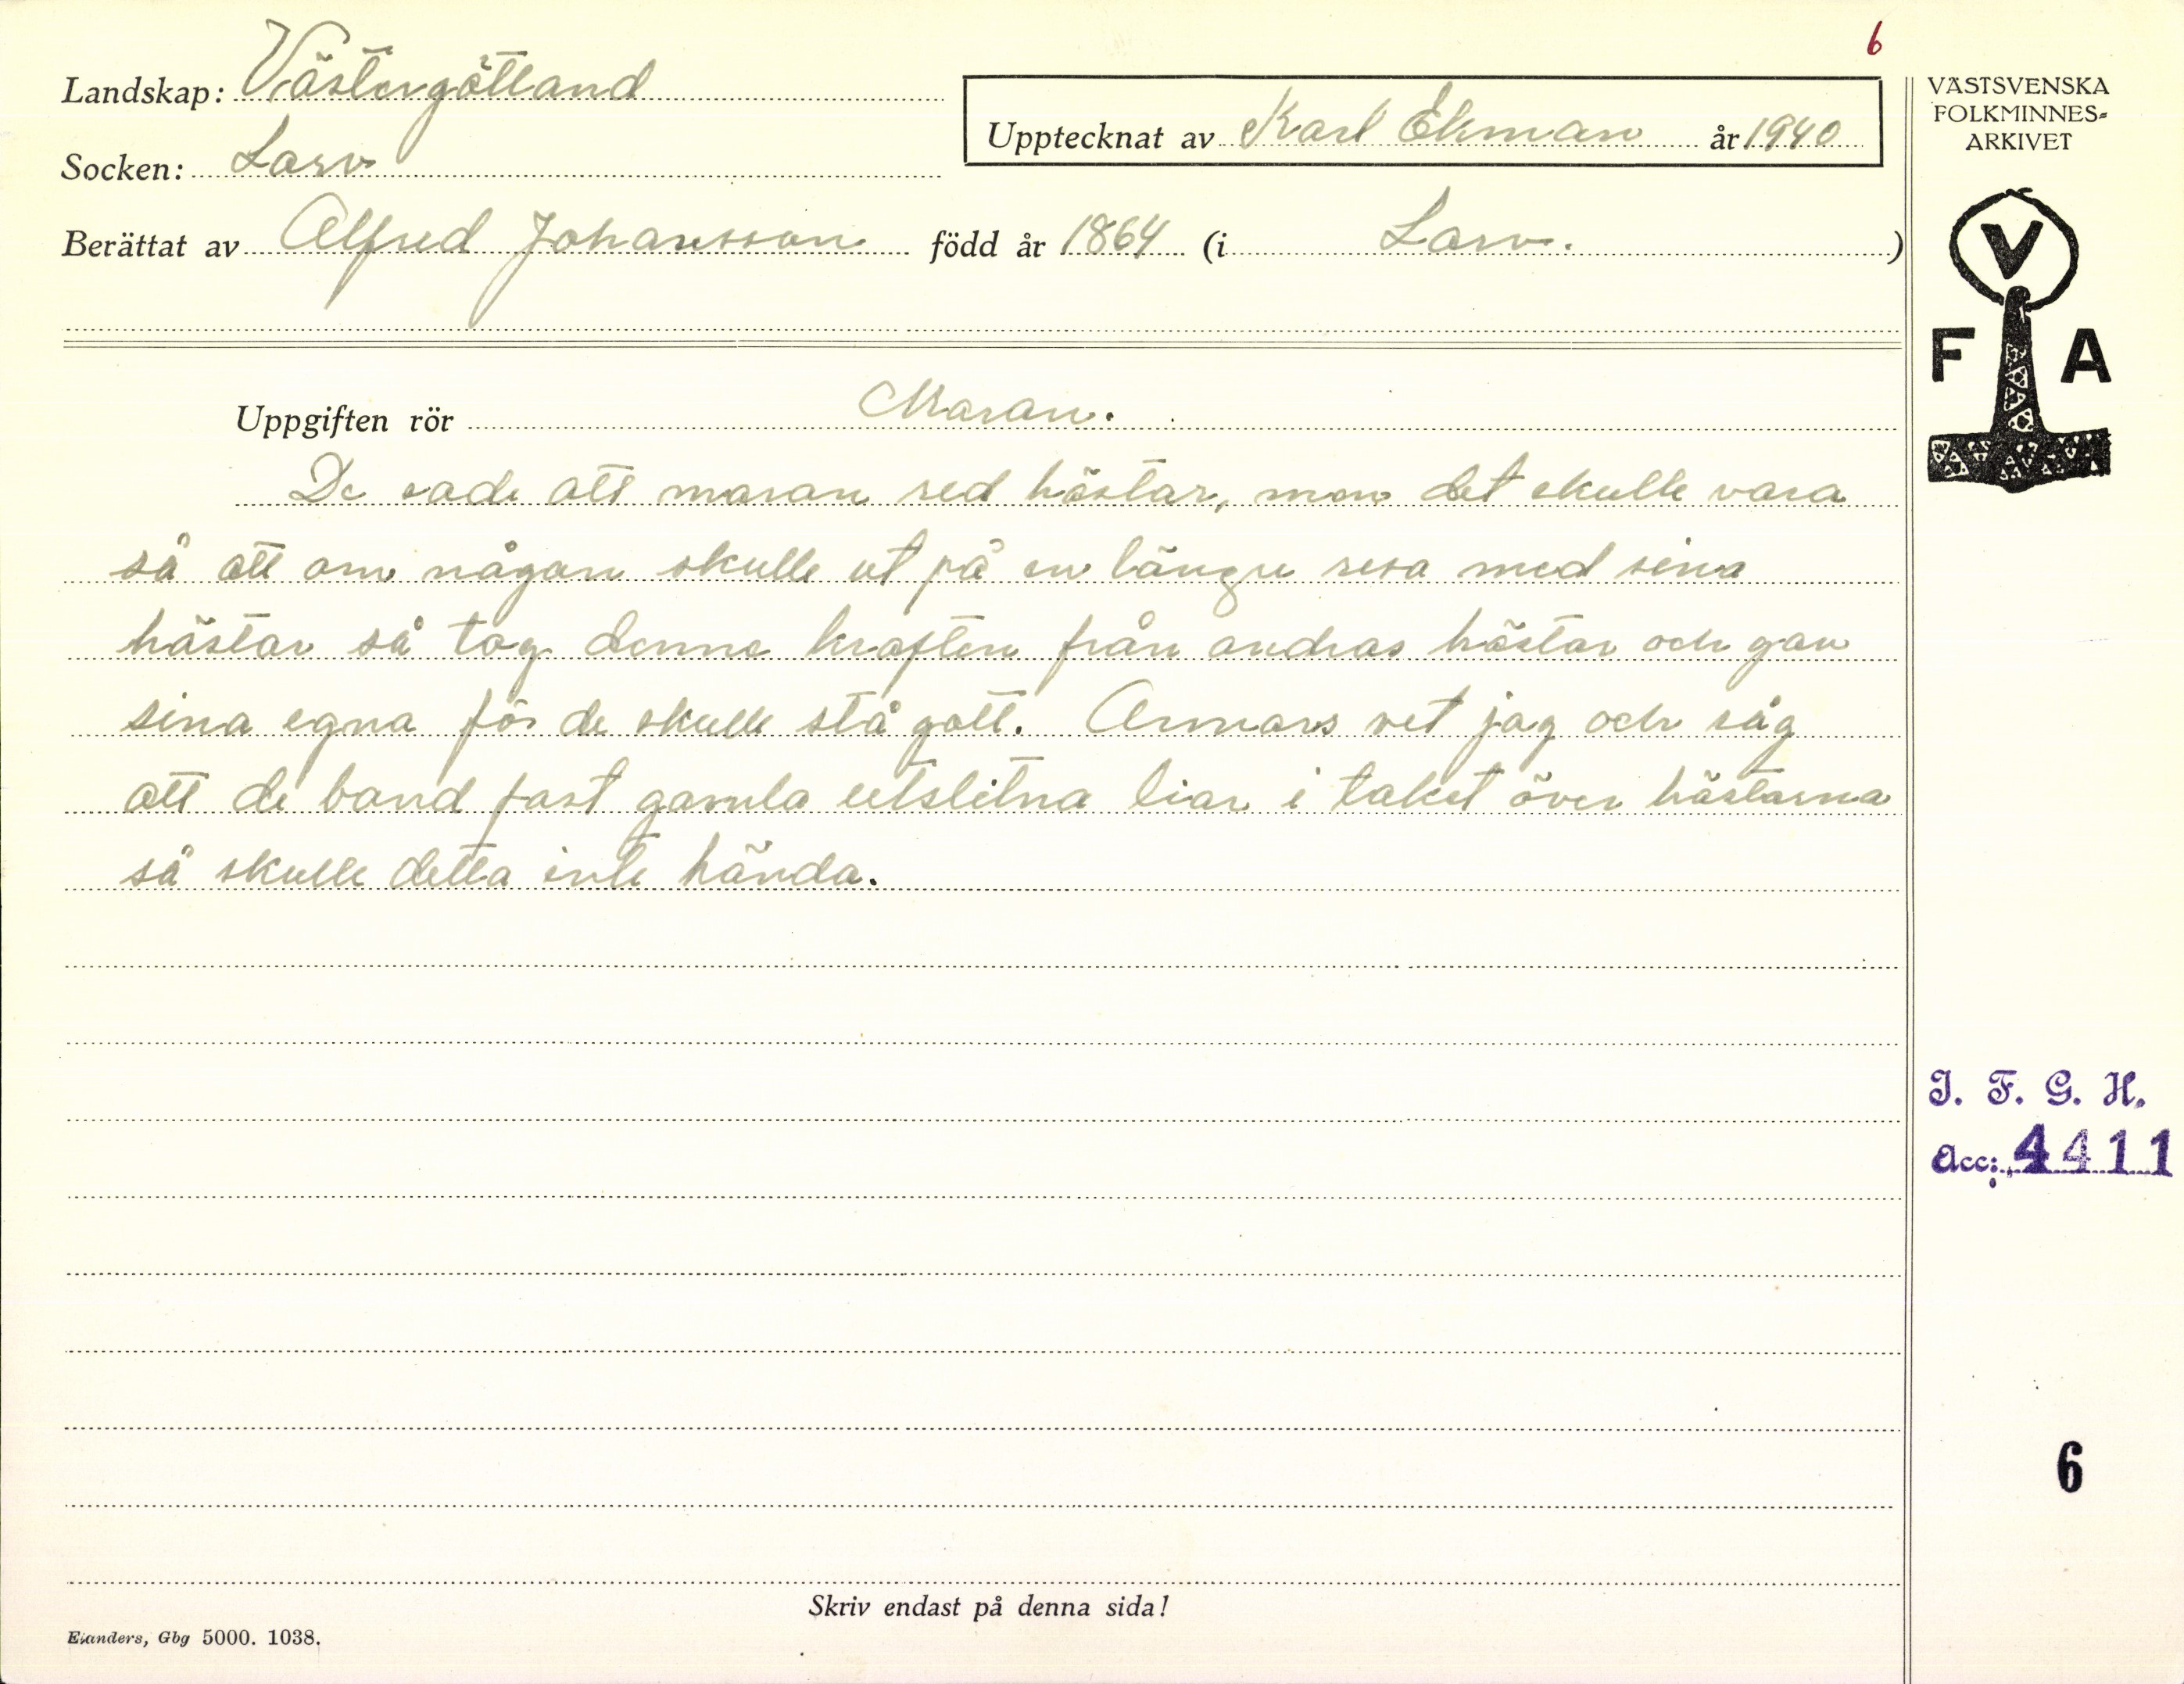 6
Landskap: Västergötland
Socken: Larv
Upptecknat av Karl Ekman år 1940
Berättat av Alfred Johansson född år 1864 (i Larv.)
VÄSTSVENSKA
FOLKMINNES=
ARKIVET
V
F A
Uppgiften rör Maran.
De sade att maran red hästar, men det skulle vara
så att om någon skulle ut på en längre resa med sina
hästar så tog denne kraften från andras hästar och gav
sina egna för de skulle stå gott. Annars vet jag och såg
att de band fast gamla utslitna liar i taket över hästarna
så skulle detta inte hända.
I. F. G. H.
Acc: 4411
6
Skriv endast på denna sida!
Elanders, Gbg 5000. 1038.